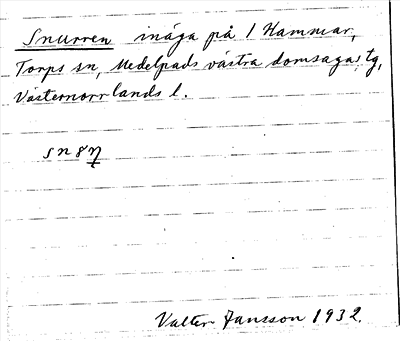 Snurren inäga på 1 Hammar,
Torps sn, Medelpads västra domsagas tg,
Västernorrlands l.
Valter Jansson 1932.